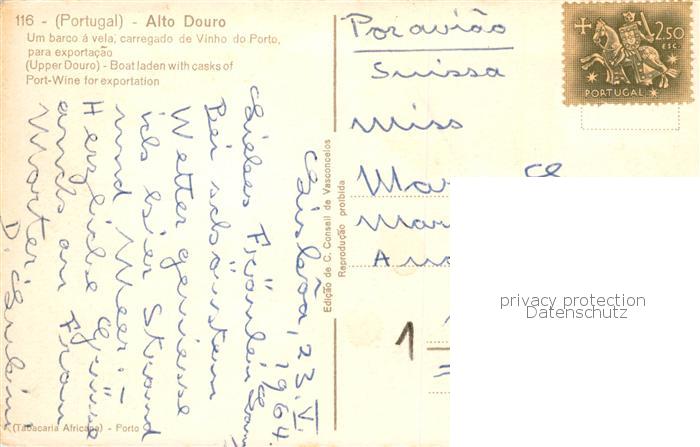 116 - (Portugal) - Alto Douro
Um barco á vela, carregado de Vinho do Porto,
para exportação
(Upper Douro) - Boat laden with casks of
Port-Wine for exportation
Lisbôa, 23.V.
1964.
Liebes Fräulein
Bei schönstem
Wetter geniesse
ich hier Strand
und Meer. -
Herzliche Grüsse
auch an Frau
(Tabacaria Africana) - Porto
Edição de C. Consell de Vasconcelos
Reprodução proibida
Por avião
Suissa
Miss
2$50
ESC.
PORTUGAL
1
privacy protection
Datenschutz